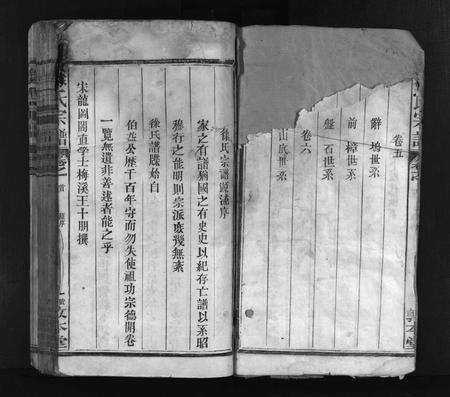 卷五
辭塢世系
前樟世系
盤石世系
卷六
山底世系
徐氏宗譜源流序
家之有譜猶國之有史史以紀存亡譜以系昭
穆行之能明則宗派庶幾無紊
徐氏譜牒始自
伯益公歷千百年守而勿失使祖功宗德開卷
一覽無遺非善述者能之乎
宋龍圖閣直學士梅溪王十朋撰
氏宗譜